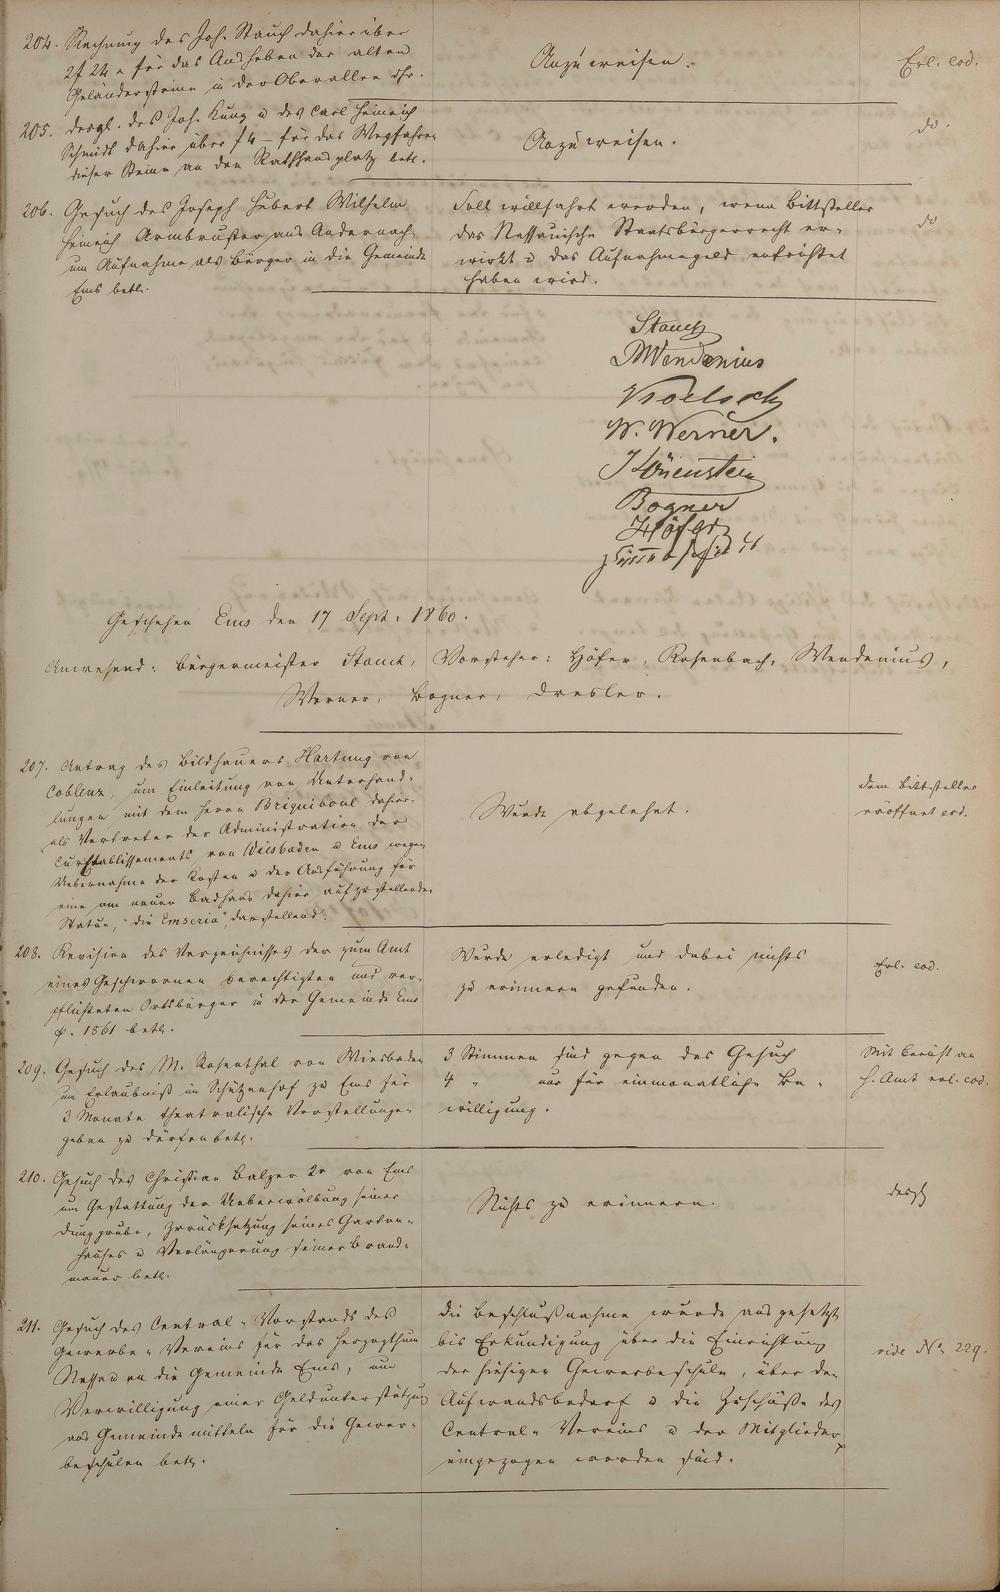 204. Rechnung des Joh. Stauch dahier über
2f 24x für das Ausheben der alten
Geländersteine in der Oberallee dhr.
Anzuweisen.
Erl. eod.
205. desgl. des Joh. Kunz u des Carl Heinrich
Schmidt dahier über f 4 – für das Wegfahren
dieser Steine an den Rathhausplatz betr.
Anzuweisen.
do.
206. Gesuch des Joseph Hubert Wilhelm
Heinrich Armbruster aus Andernach
um Aufnahme als Bürger in die Gemeinde
Ems betr.
Soll willfahrt werden, wenn Bittsteller
das Nassauische Staatsbürgerrecht er-
wirkt u das Aufnahmegeld entrichtet
haben wird.
do
Stauch
Wendenius
W. Werner.
Bogner
Höfer
Geschehen Ems den 17 Sept. 1860.
Anwesend: Bürgermeister Stauch, Vorsteher: Höfer, Rosenbach, Wendenius,
Werner, Bogner, Dresler.
207. Antrag des Bildhauers Hartung von
Coblenz, um Einleitung von Unterhand-
lungen mit dem Herrn Briguiboul dahier
als Vertreter der Administration der
CurEtablissements von Wiesbaden u Ems wegen
Uebernahme der Kosten u der Ausführung für
eine am neuen Badhaus dahier aufzustellende
Statue, "die Emseria", darstellend.
Wurde abgelehnt.
dem Bittsteller
eröffnet eod.
208. Revision des Verzeichnisses der zum Amt
eines Geschwornen berechtigten und ver-
pflichteten Ortsbürger in der Gemeinde Ems
p. 1861 betr.
Wurde erledigt und dabei nichts
zu erinnern gefunden.
Erl. eod.
209. Gesuch des M. Rosenthal von Wiesbaden
um Erlaubniß im Schützenhof zu Ems für
3 Monate theatralische Vorstellungen
geben zu dürfen betr.
3 Stimmen sind gegen das Gesuch
4 " nur für einmonatliche Be-
willigung.
Mit Bericht an
H. Amt erl. eod.
210. Gesuch des Christian Balzer 2r von Ems
um Gestattung der Ueberwölbung seiner
Dunggrube, Zurücksetzung seines Garten-
hauses u Verlängerung seiner Brand-
mauer betr.
Nichts zu erinnern.
desgl
211. Gesuch des Central-Vorstands des
Gewerbe-Vereins für das Herzogthum
Nassau an die Gemeinde Ems, um
Verwilligung einer Geldunterstützung
aus Gemeindemitteln für die Gewer-
beschulen betr.
die Beschlußnahme wurde ausgesetzt
bis Erkundigung über die Einrichtung
der hiesigen Gewerbeschule, über den
Aufwandsbedarf u die Zuschüße des
Central-Vereins u der Mitglieder
eingezogen worden sind.
vide No. 229.